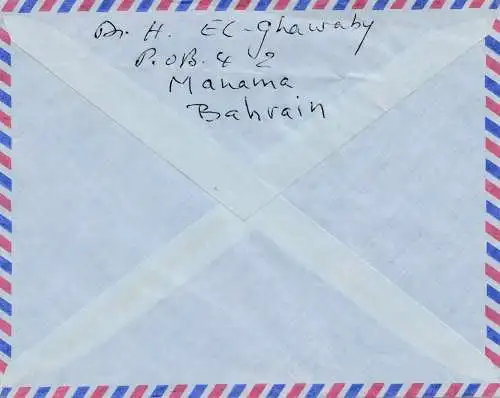 Dr. H. El-Ghawaby
P.OB. 42
Manama
Bahrain